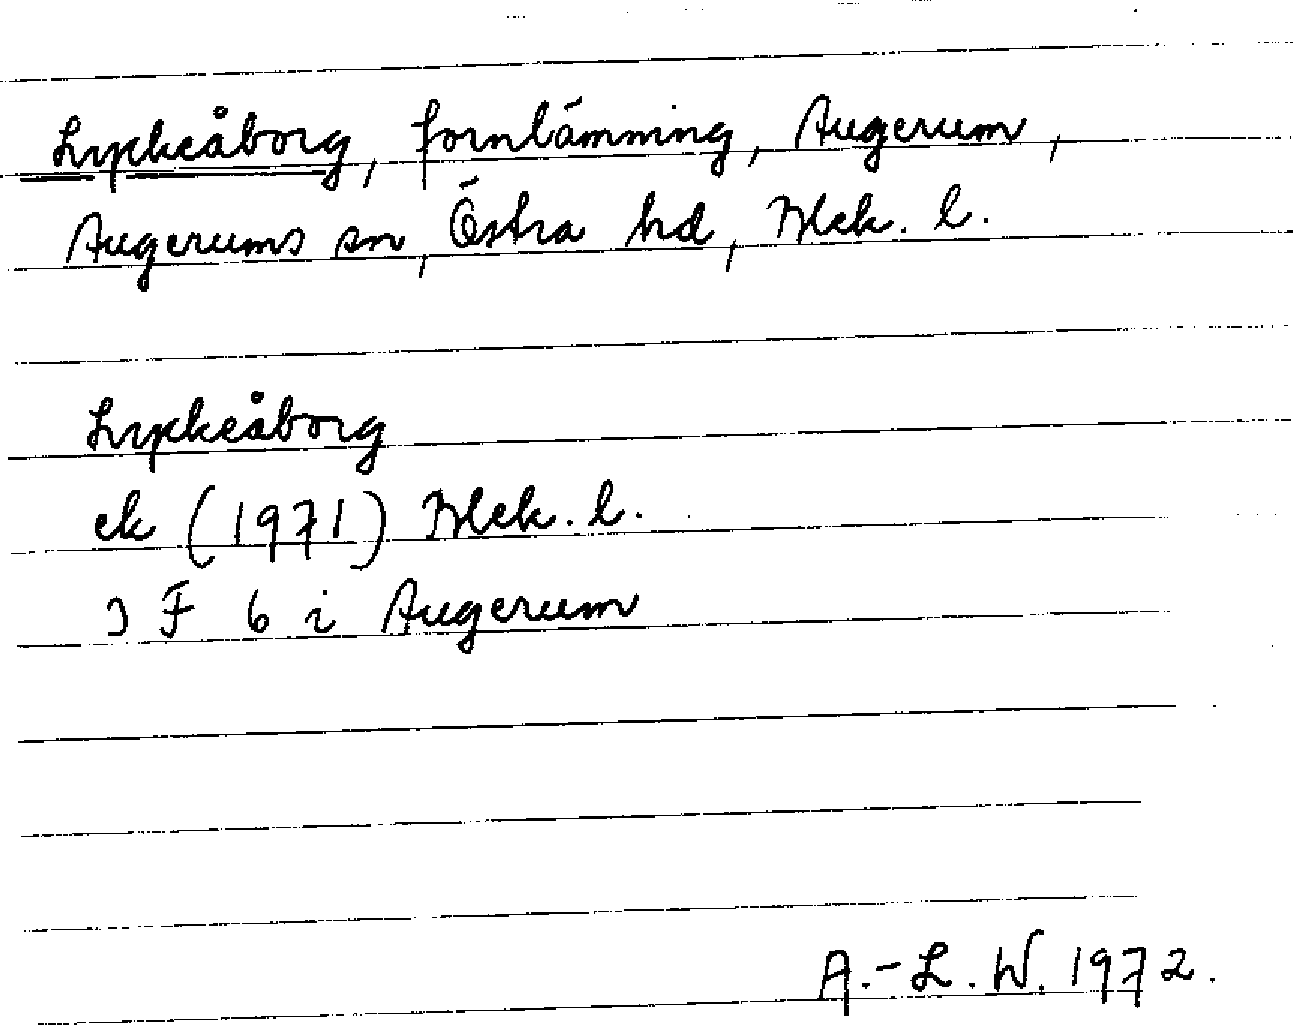 Lyckeåborg, fornlämning, Augerum,
Augerums sn, Östra hd, Blek. l.
Lyckeåborg
ek (1971) Blek. l.
3 F 6 i Augerum
A.-L. W. 1972.